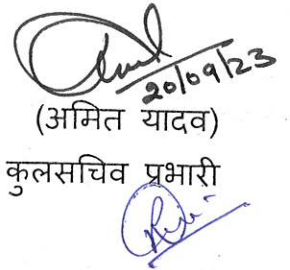 20/09/23
(अमित यादव)
कुलसचिव प्रभारी